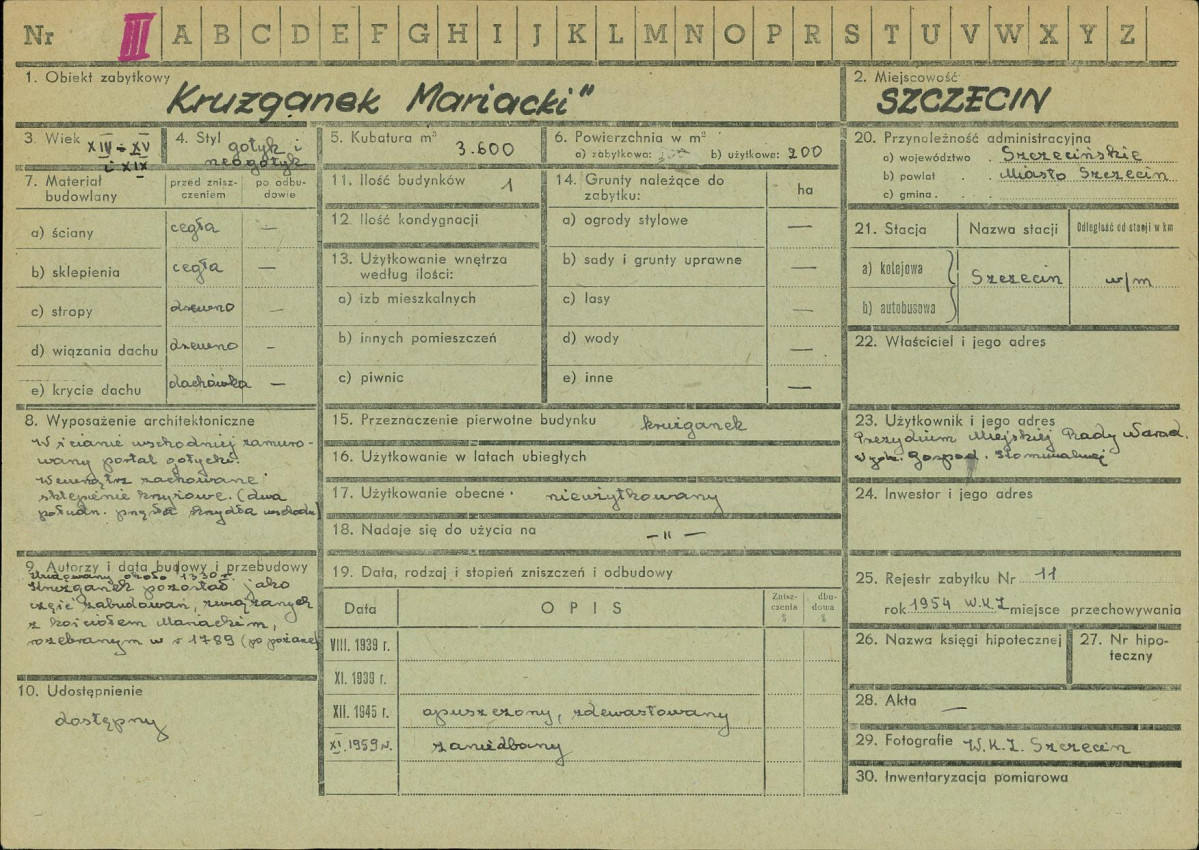 Nr III A B C D E F G H I J K L M N O P R S T U V W X Y Z
1. Obiekt zabytkowy
Kruzganek Mariacki"
2. Miejscowość
SZCZECIN
3. Wiek XIV÷XV
i XIX
4. Styl gotyk i
neogotyk
5. Kubatura m³ 3.600
6. Powierzchnia w m²
a) zabytkowa: b) użytkowa: 200
7. Materiał
budowlany
przed znisz-
czeniem
po odbu-
dowie
a) ściany cegła —
b) sklepienia cegła —
c) stropy drewno —
d) wiązania dachu drewno —
e) krycie dachu dachówka —
8. Wyposażenie architektoniczne
W ścianie wschodniej zamuro-
wany portal gotycki.
Wewnątrz zachowane
sklepienie krzyżowe. (dwa
połudn. przęsła skrzydła wschodn)
9. Autorzy i data budowy i przebudowy
Zbudowany około 1330 r.
Kruzganek pozostał jako
część zabudowań, związanych
z kościołem Mariackim,
rozebranym w r 1789 (po pożarze)
10. Udostępnienie
dostępny
11. Ilość budynków 1
12. Ilość kondygnacji
13. Użytkowanie wnętrza
według ilości:
a) izb mieszkalnych
b) innych pomieszczeń
c) piwnic
14. Grunty należące do
zabytku:
ha
a) ogrody stylowe —
b) sady i grunty uprawne —
c) lasy —
d) wody —
e) inne —
15. Przeznaczenie pierwotne budynku krużganek
16. Użytkowanie w latach ubiegłych
17. Użytkowanie obecne nieużytkowany
18. Nadaje się do użycia na — " —
19. Data, rodzaj i stopień zniszczeń i odbudowy
Data OPIS
Znisz-
czenia
%
dbu-
dowa
%
VIII. 1939 r.
XI. 1939 r.
XII. 1945 r. opuszczony, zdewastowany
XI. 1959 r. zaniedbany
20. Przynależność administracyjna
a) województwo . Szczecińskie
b) powiat . Miasto Szczecin
c) gmina . .
21. Stacja Nazwa stacji Odległość od stacji w km
a) kolejowa
Szczecin w/m
b) autobusowa
22. Właściciel i jego adres
23. Użytkownik i jego adres
Prezydium Miejskiej Rady Narod.
Wydz. Gospod. Komunalnej
24. Inwestor i jego adres
25. Rejestr zabytku Nr 11
rok 1954 W.K.Z miejsce przechowywania
26. Nazwa księgi hipotecznej
27. Nr hipo-
teczny
28. Akta —
29. Fotografie W.K.Z. Szczecin
30. Inwentaryzacja pomiarowa